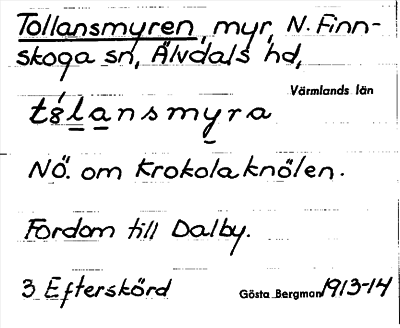 Tollansmyren, myr, N. Finn-
skoga sn, Älvdals hd,
Värmlands län
NÖ. om Krokolaknölen.
Fordom till Dalby.
3 Efterskörd Gösta Bergman 1913-14